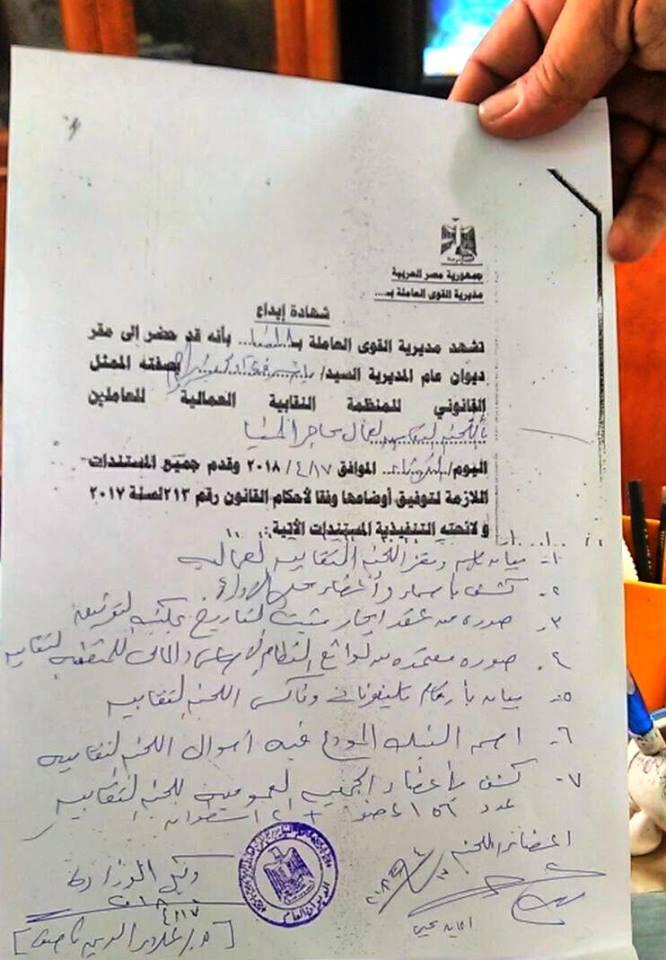 جمهورية مصر العربية
مديرية القوى العاملة بـ....
شهادة إيداع
تشهد مديرية القوى العاملة بـ المنيا... بأنه قد حضر إلى مقر
ديوان عام المديرية السيد/ بصفته الممثل
القانوني للمنظمة النقابية العمالية للعاملين
باللجنة النقابية لعمال محاجر المنيا
اليوم/ الثلاثاء... الموافق ١٧/ ٤/ ٢٠١٨ وقدم جميع المستندات
اللازمة لتوفيق أوضاعها وفقا لأحكام القانون رقم ٢١٣ لسنة ٢٠١٧
و لائحته التنفيذية المستندات الآتية :
١- بيان باسم ومقر اللجنة النقابية العمالية
٢- كشف بأسماء وأعضاء مجلس الإدارة
٣- صورة من عقد ايجار مثبت التاريخ
٤- صورة معتمدة من لوائح النظام الأساسي والمالى للمنظمة النقابية
٥- بيان بأرقام تليفونات وفاكس اللجنة النقابية
٦- اسم البنك المودع فيه أموال اللجنة النقابية
٧- كشف بأعضاء الجمعية العمومية للجنة النقابية
عدد ١٥٦ عضو + ٢١ استمارة
أعضاء اللجنة
وكيل الوزارة
٢٠١٨
٤/١٧